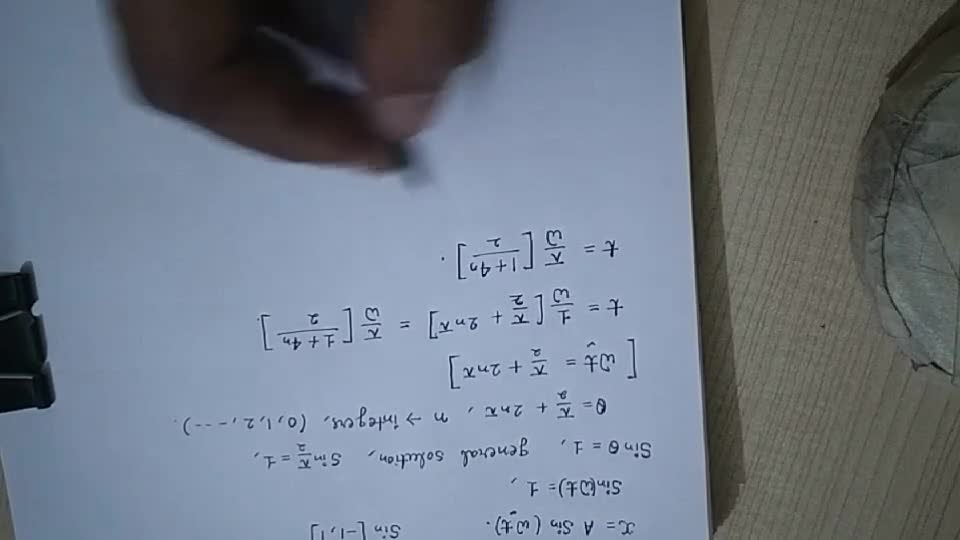 x = A Sin (ωt). Sin [-1, 1]
Sin(ωt) = 1,
Sin θ = 1, general solution, Sin π/2 = 1,
θ = π/2 + 2nπ, n → integers, (0, 1, 2, ----).
[ωt = π/2 + 2nπ]
t = 1/ω [π/2 + 2nπ] = π/ω [1+4n/2].
t = π/ω [1+4n/2].